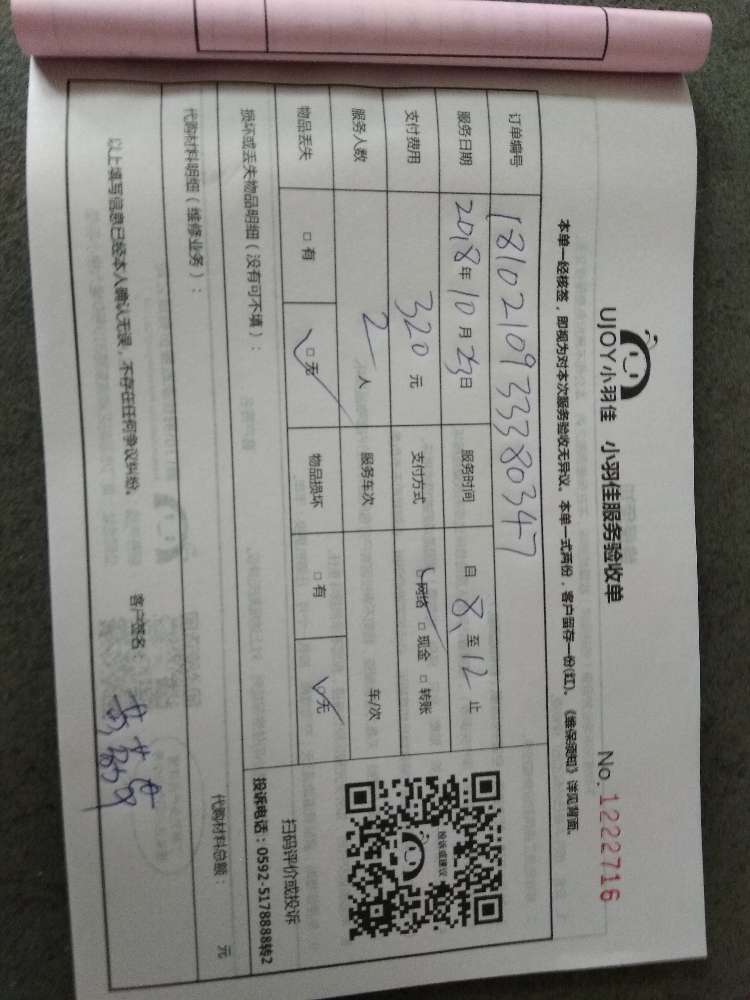 UJOY小羽佳 小羽佳服务验收单
No. 1222716
本单一经核签，即视为对本次服务验收无异议。本单一式两份，客户留存一份(红)。《维保须知》详见背面。
订单编号 18102109333380347
服务日期 2018年10月23日 服务时间 自8至12止
支付费用 320元 支付方式 ☑网络 □现金 □转账
服务人数 2人 服务车次 车/次
物品丢失 □有 ☑无 物品损坏 □有 ☑无
投诉或建议
扫码评价或投诉
投诉电话：0592-5178888转2
损坏或丢失物品明细（没有可不填）：
代购材料明细（维修业务）： 代购材料总额： 元
以上填写信息已经本人确认无误，不存在任何争议纠纷。 客户签名：